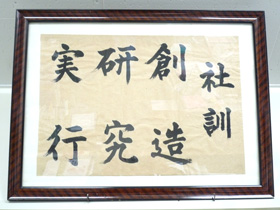 社訓
創造
研究
実行